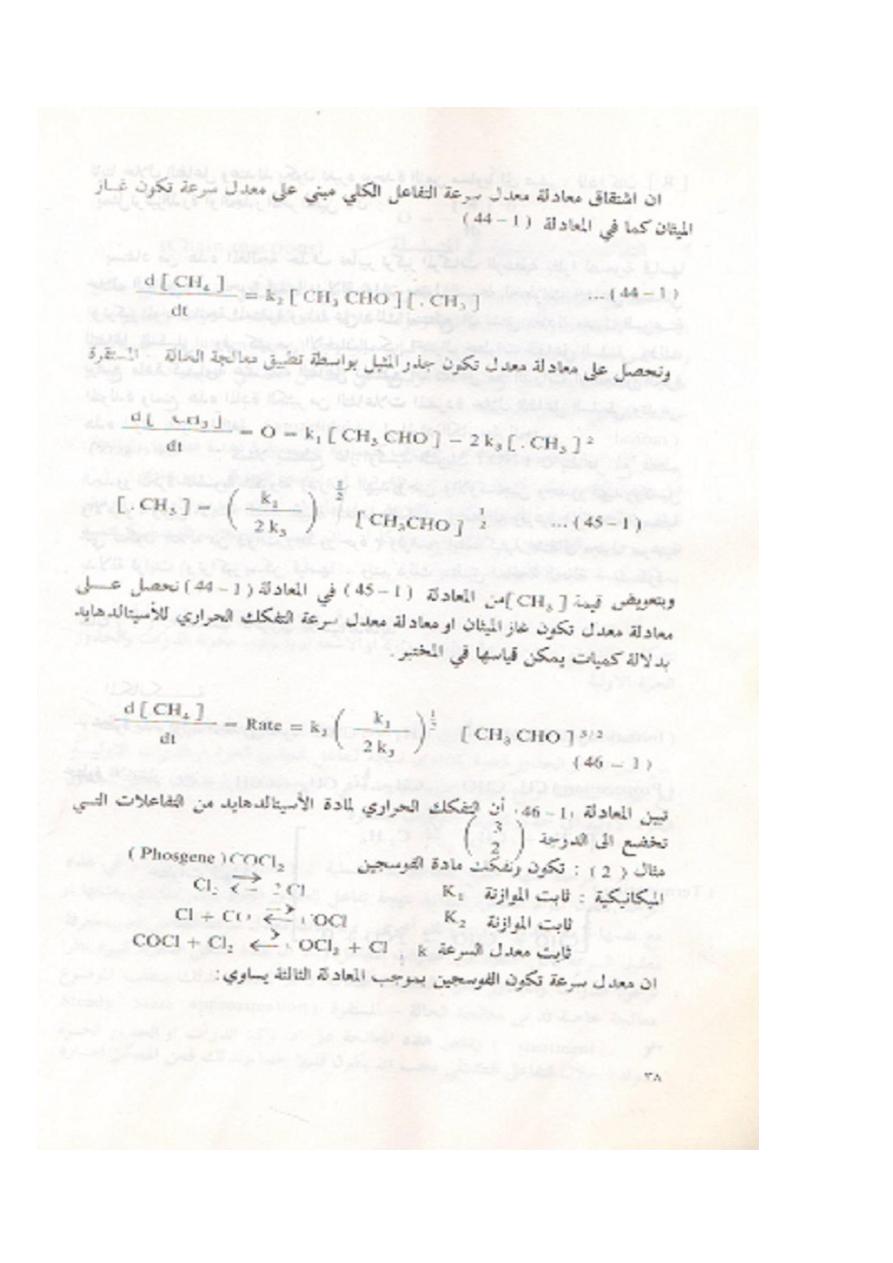 ان اشتقاق معادلة معدل سرعة التفاعل الكلي مبني على معدل سرعة تكون غـاز
الميثان كما في المعادلة ( 1 – 44 )
d [ CH₄ ] / dt = k₂ [ CH₃ CHO ] [ . CH₃ ] ... ( 44 – 1 )
ونحصل على معادلة معدل تكون جذر المثيل بواسطة تطبيق معالجة الحالة المستقرة
d [ CH₃ ] / dt = O = k₁ [ CH₃ CHO ] – 2 k₃ [ . CH₃ ] ²
[ . CH₃ ] = ( k₁ / 2 k₃ ) ½ [ CH₃CHO ] ½ ... ( 45 – 1 )
وبتعويض قيمة [ CH₃ ] من المعادلة ( 1 – 45 ) في المعادلة ( 1 – 44 ) نحصل عـلـى
معادلة معدل تكون غاز الميثان او معادلة معدل سرعة التفكك الحراري للأسيتالدهايد
بدلالة كميات يمكن قياسها في المختبر .
d [ CH₄ ] / dt = Rate = k₂ ( k₁ / 2 k₃ ) ½ [ CH₃ CHO ] ³/²
( 46 – 1 )
تبين المعادلة ( 1 – 46 ) أن التفكك الحراري لمادة الأسيتالدهايد من التفاعلات التـي
تخضع الى الدرجة ( 3 / 2 )
مثال ( 2 ) : تكون وتفكك مادة الفوسجين ( Phosgene ) COCl₂
الميكانيكية : ثابت الموازنة K₁ Cl₂ ⇌ 2 Cl
ثابت الموازنة K₂ Cl + CO ⇌ COCl
ثابت معدل السرعة k COCl + Cl₂ ⇌ COCl₂ + Cl
ان معدل سرعة تكون الفوسجين بموجب المعادلة الثالثة يساوي :
٣٨